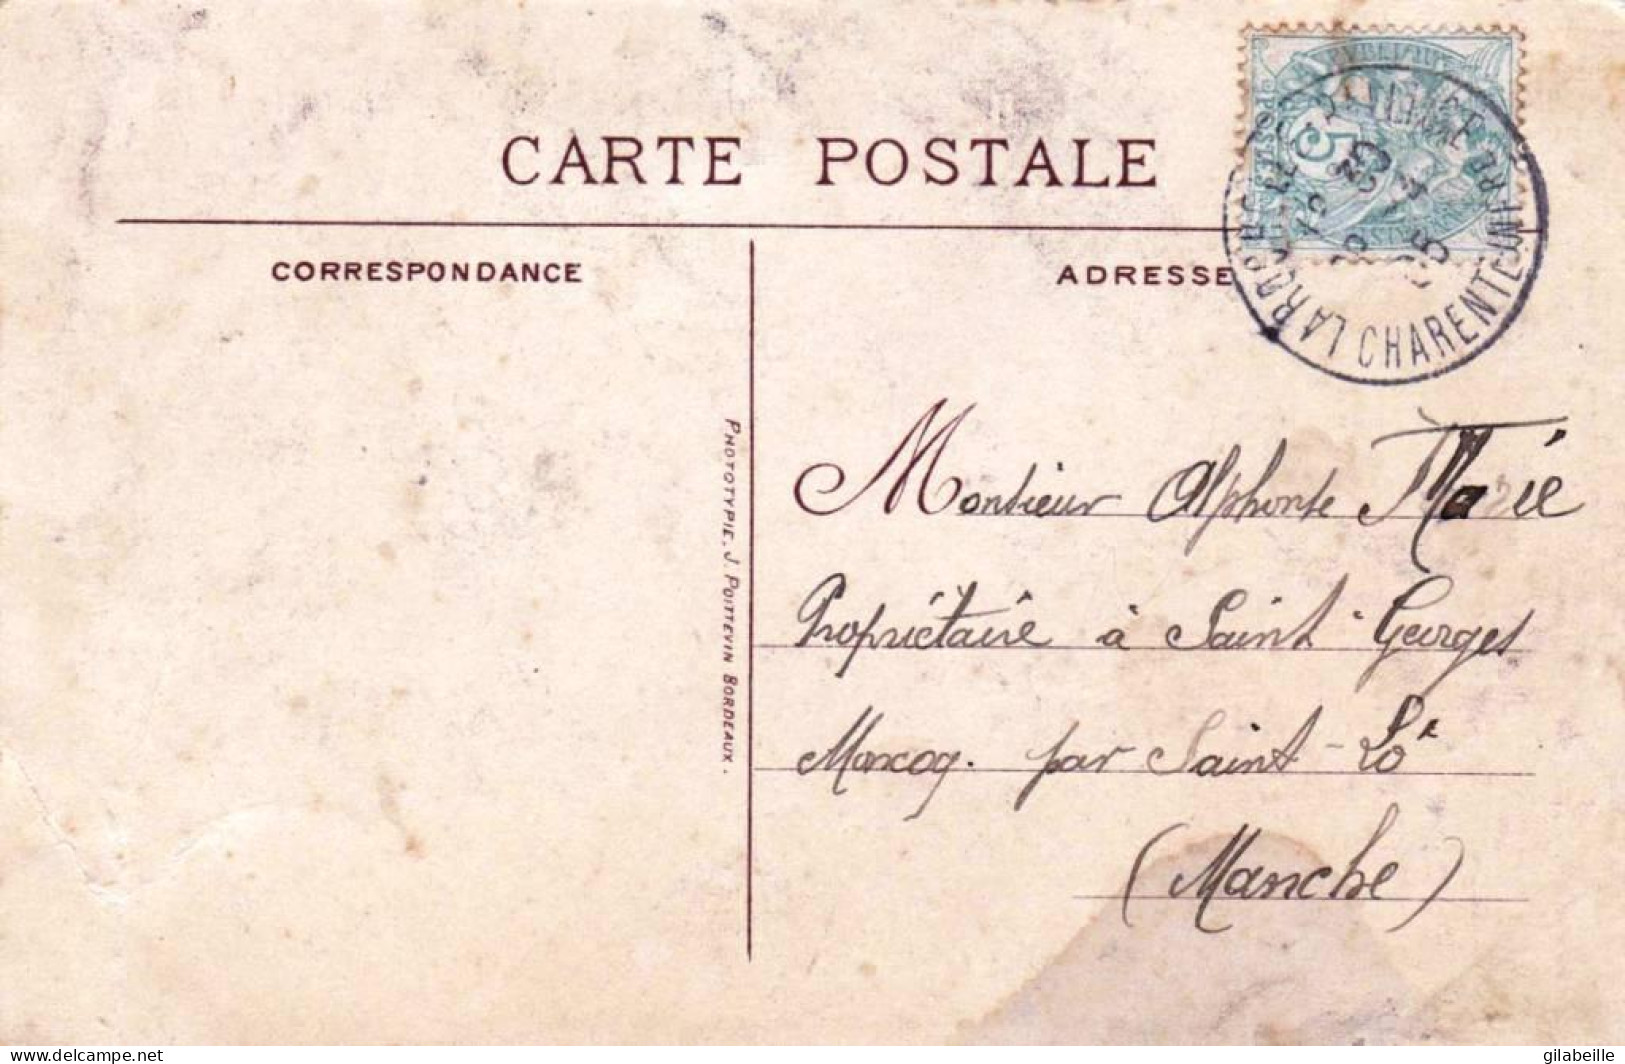 CARTE POSTALE
CORRESPONDANCE
ADRESSE
LA ROCHELLE
CHARENTE INFRE
5
PHOTOTYPIE. J. POITEVIN BORDEAUX.
Monsieur Alphonse Marie
Propriétaire à Saint-Georges
par Saint-Lô
(Manche)
www.delcampe.net
gilabeille